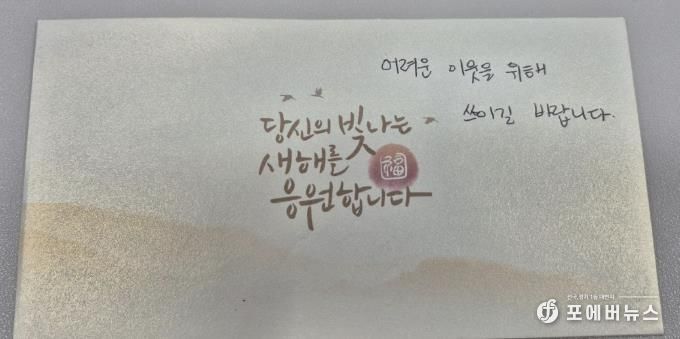 어려운 이웃을 위해
쓰이길 바랍니다.
당신의 빛나는
새해를
福
응원합니다
포에버뉴스